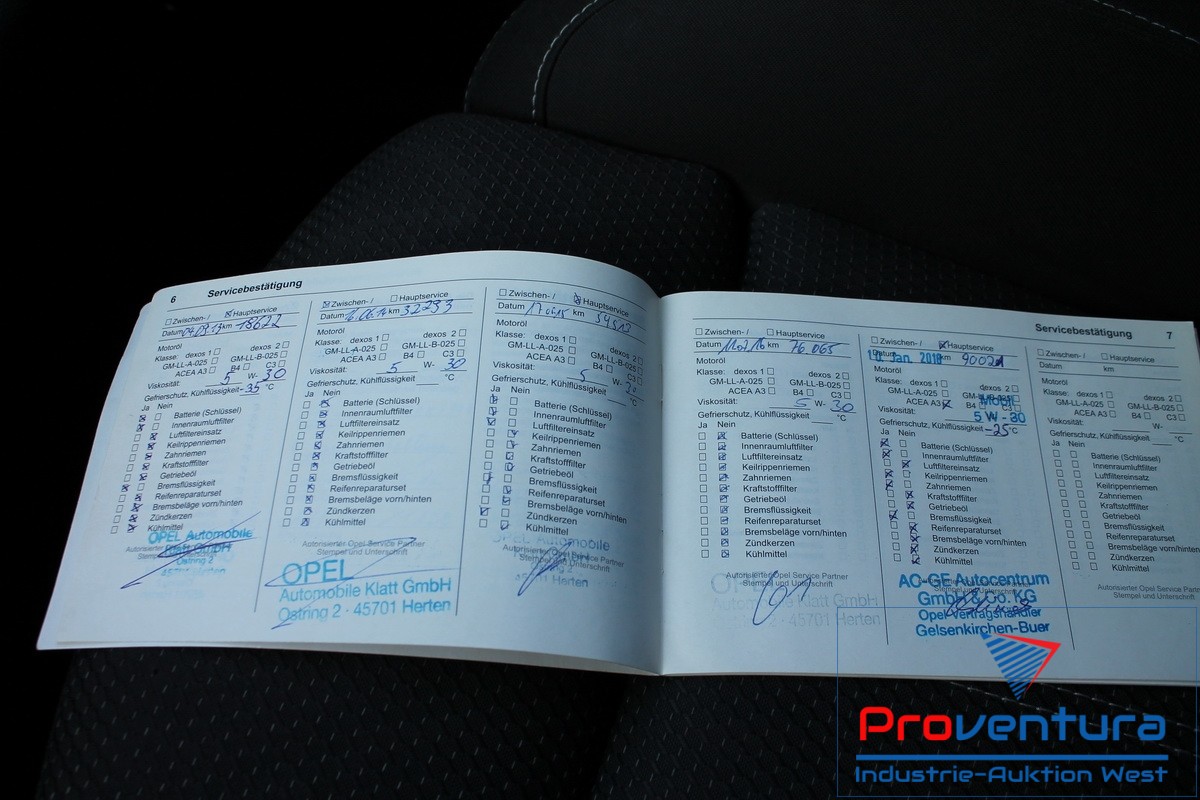 6 Servicebestätigung
Zwischen- / Hauptservice
Datum 04.09.13 km 18622
Motoröl
Klasse: dexos 1 dexos 2
GM-LL-A-025 GM-LL-B-025
ACEA A3 B4 C3
Viskosität: 5 W- 30
Gefrierschutz, Kühlflüssigkeit -35 °C
Ja Nein
Batterie (Schlüssel)
Innenraumluftfilter
Luftfiltereinsatz
Keilrippenriemen
Zahnriemen
Kraftstofffilter
Getriebeöl
Bremsflüssigkeit
Reifenreparaturset
Bremsbeläge vorn/hinten
Zündkerzen
Kühlmittel
Autorisierter Opel Service Partner
Stempel und Unterschrift
OPEL Automobile
Klatt GmbH
Ostring 2
45701 Herten
Zwischen- / Hauptservice
Datum 16.06.14 km 32233
Motoröl
Klasse: dexos 1 dexos 2
GM-LL-A-025 GM-LL-B-025
ACEA A3 B4 C3
Viskosität: 5 W- 30
Gefrierschutz, Kühlflüssigkeit °C
Ja Nein
Batterie (Schlüssel)
Innenraumluftfilter
Luftfiltereinsatz
Keilrippenriemen
Zahnriemen
Kraftstofffilter
Getriebeöl
Bremsflüssigkeit
Reifenreparaturset
Bremsbeläge vorn/hinten
Zündkerzen
Kühlmittel
Autorisierter Opel Service Partner
Stempel und Unterschrift
OPEL
Automobile Klatt GmbH
Ostring 2 · 45701 Herten
Zwischen- / Hauptservice
Datum km
Motoröl
Klasse: dexos 1 dexos 2
GM-LL-A-025 GM-LL-B-025
ACEA A3 B4 C3
Viskosität: 5 W-
Gefrierschutz, Kühlflüssigkeit °C
Ja Nein
Batterie (Schlüssel)
Innenraumluftfilter
Luftfiltereinsatz
Keilrippenriemen
Zahnriemen
Kraftstofffilter
Getriebeöl
Bremsflüssigkeit
Reifenreparaturset
Bremsbeläge vorn/hinten
Zündkerzen
Kühlmittel
Autorisierter Opel Service Partner
Stempel und Unterschrift
OPEL Automobile
Ostring 2
45701 Herten
Servicebestätigung 7
Zwischen- / Hauptservice
Datum km 76.065
Motoröl
Klasse: dexos 1 dexos 2
GM-LL-A-025 GM-LL-B-025
ACEA A3 B4 C3
Viskosität: 5 W- 30
Gefrierschutz, Kühlflüssigkeit °C
Ja Nein
Batterie (Schlüssel)
Innenraumluftfilter
Luftfiltereinsatz
Keilrippenriemen
Zahnriemen
Kraftstofffilter
Getriebeöl
Bremsflüssigkeit
Reifenreparaturset
Bremsbeläge vorn/hinten
Zündkerzen
Kühlmittel
Autorisierter Opel Service Partner
Stempel und Unterschrift
OPEL
Automobile Klatt GmbH
Ostring 2 · 45701 Herten
Zwischen- / Hauptservice
Datum Jan. km 90021
Motoröl
Klasse: dexos 1 dexos 2
GM-LL-A-025 GM-LL-B-025
ACEA A3 B4 C3
Viskosität: 5 W - 30
Gefrierschutz, Kühlflüssigkeit -25 °C
Ja Nein
Batterie (Schlüssel)
Innenraumluftfilter
Luftfiltereinsatz
Keilrippenriemen
Zahnriemen
Kraftstofffilter
Getriebeöl
Bremsflüssigkeit
Reifenreparaturset
Bremsbeläge vorn/hinten
Zündkerzen
Kühlmittel
AC-GE Autocentrum
GmbH & Co. KG
Opel-Vertragshändler
Gelsenkirchen-Buer
Zwischen- / Hauptservice
Datum km
Motoröl
Klasse: dexos 1 dexos 2
GM-LL-A-025 GM-LL-B-025
ACEA A3 B4 C3
Viskosität: W-
Gefrierschutz, Kühlflüssigkeit °C
Ja Nein
Batterie (Schlüssel)
Innenraumluftfilter
Luftfiltereinsatz
Keilrippenriemen
Zahnriemen
Kraftstofffilter
Getriebeöl
Bremsflüssigkeit
Reifenreparaturset
Bremsbeläge vorn/hinten
Zündkerzen
Kühlmittel
Autorisierter Opel Service Partner
Stempel und Unterschrift
Proventura
Industrie-Auktion West